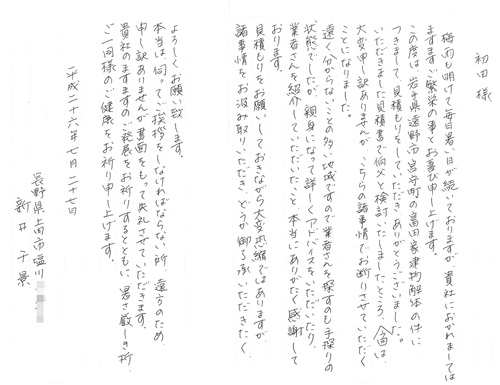 初田 様
梅雨も明けて毎日暑い日が続いておりますが、貴社におかれましては
ますますご繁栄の事とお喜び申し上げます。
この度は、岩手県遠野市宮守町の高田家建物解体の件に
つきまして、見積もりをしていただきありがとうございました。
いただきました見積書で伯父と検討いたしましたところ、今回は
大変申し訳ありませんが、こちらの諸事情でお断りさせていただく
ことになりました。
遠く分からないことの多い地域ですので業者さんを探すのも手探りの
状態でしたが、親身になって詳しくアドバイスをいただいたり、
業者さんを紹介していただいたいと、本当にありがたく感謝して
おります。
見積もりをお願いしておきながら大変恐縮ではありますが
諸事情をお汲み取りいただき、どうか御了承いただきたく
よろしくお願い致します。
本当は、伺ってご挨拶をしなければならない所、遠方のため
申し訳ありませんが書面をもって失礼させていただきます。
貴社のますますのご発展をお祈りするとともに、暑さ厳しき所、
ご一同様のご健康をお祈り申し上げます。
平成二十六年七月二十七日
長野県上田市塩川
新井 千景